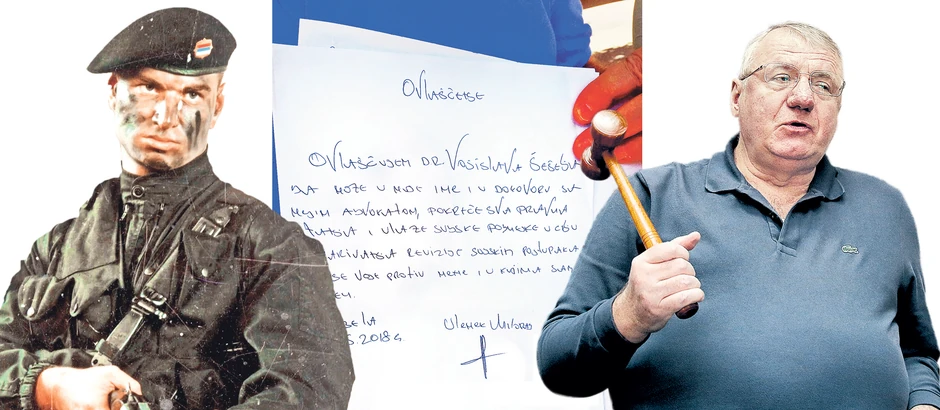 OVLAŠĆENJE
OVLAŠĆUJEM DR VOJISLAVA ŠEŠELJA
DA MOŽE U MOJE IME I U DOGOVORU SA
MOJIM ADVOKATOM, POKREĆE SVA PRAVNA
I ULAŽE SUDSKE PODNESKE U CILJU
REVIZIJE SUDSKIH POSTUPAKA
SE VODE PROTIV MENE I U KOJIMA SAM
2018 G. Ulemek Milorad